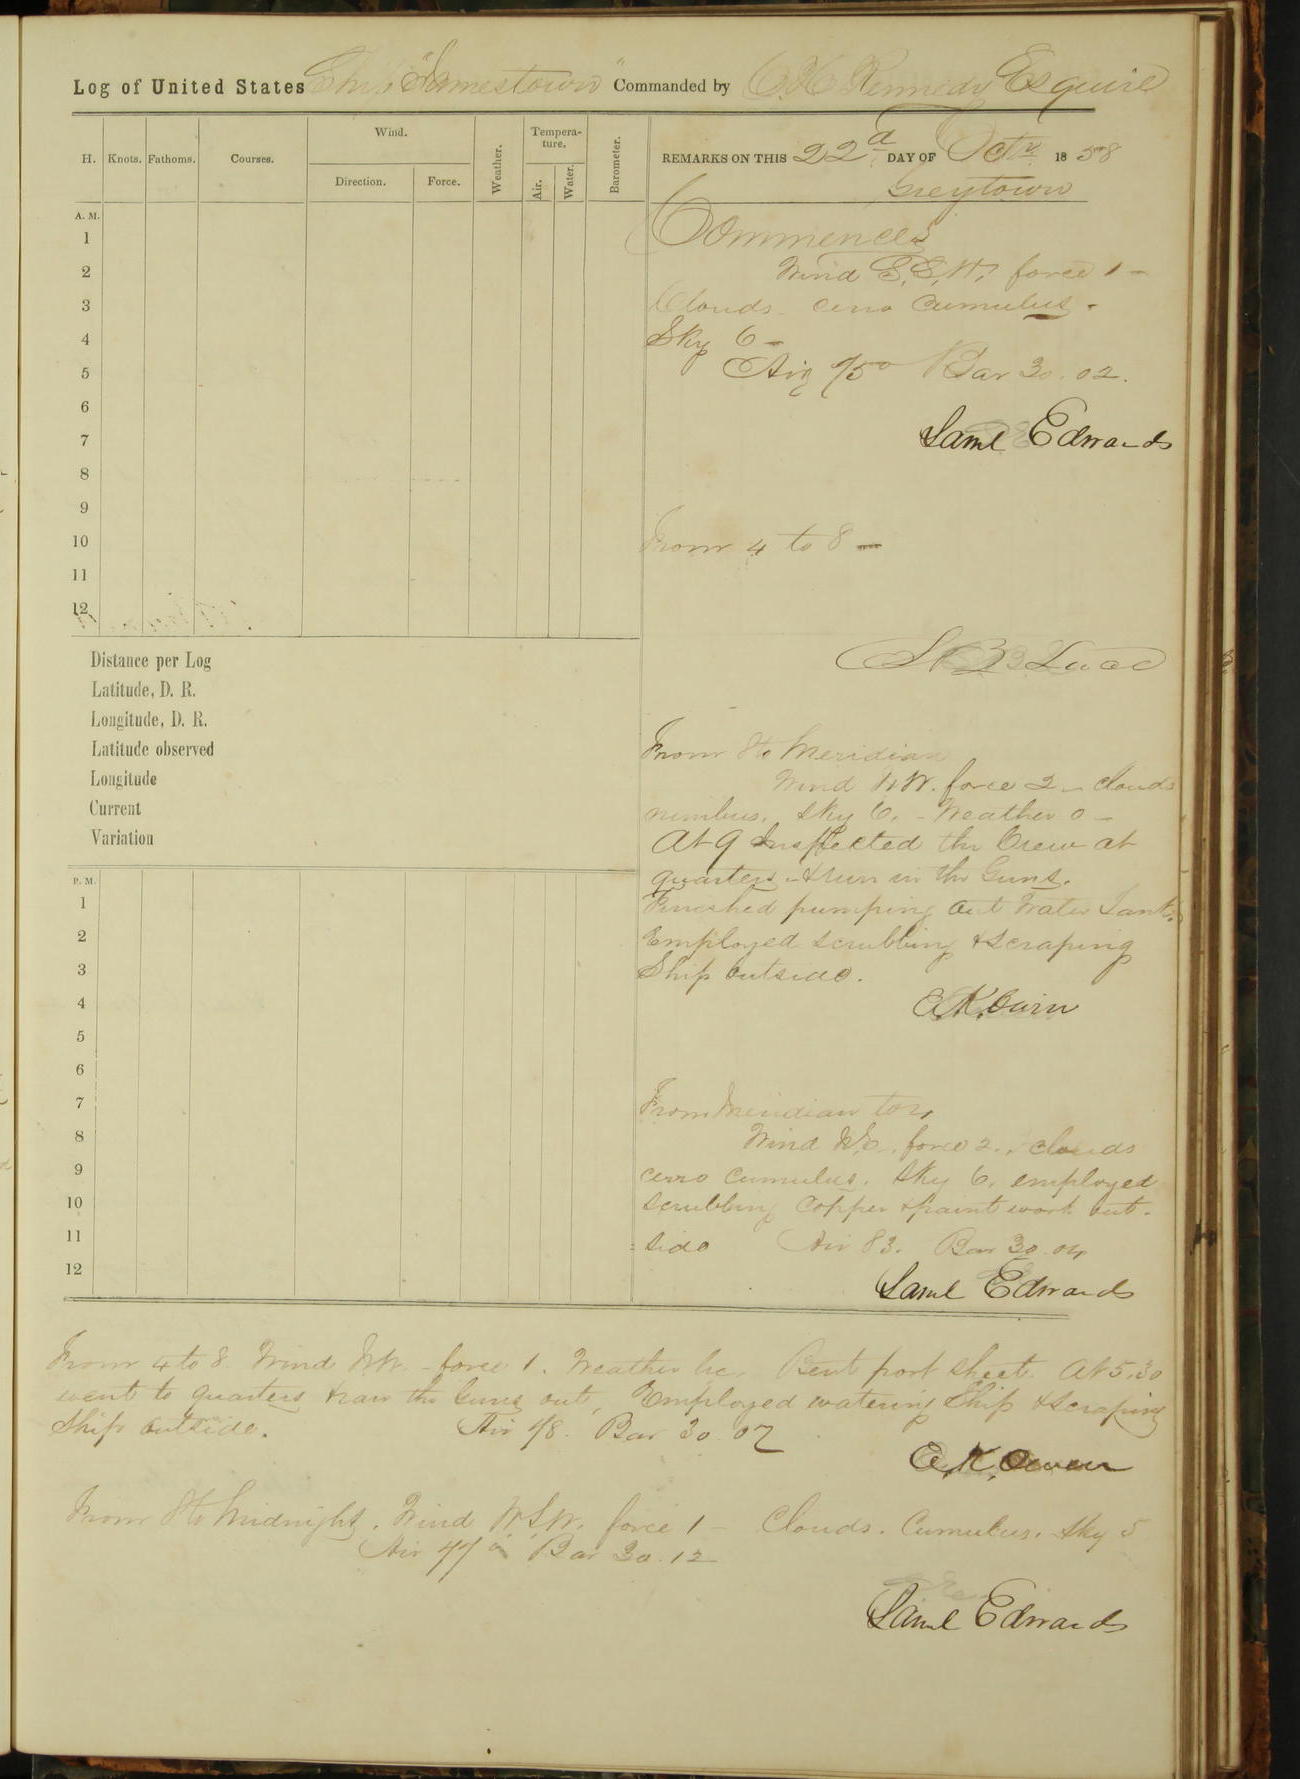 Log of United States Ship "Jamestown" Commanded by C. H. Kennedy Esquire
H. Knots. Fathoms. Courses. Wind. Direction. Force. Weather. Tempera-ture. Air. Water. Barometer.
REMARKS ON THIS 22d DAY OF Octr 1858
Greytown
A. M.
1
2
3
4
5
6
7
8
9
10
11
12
Commences
Wind S.S.W. force 1 -
Clouds - cirro cumulus -
Sky 6 -
Air 75° Bar 30.02.
Saml Edwards
From 4 to 8 -
S B Luce
Distance per Log
Latitude, D. R.
Longitude, D. R.
Latitude observed
Longitude
Current
Variation
From 8 to Meridian
Wind NW. force 2 - clouds
nimbus. Sky 6. - Weather o -
At 9 Inspected the Crew at
quarters & run in the Guns.
Finished pumping out Water Tanks.
Employed scrubbing & scraping
Ship outside.
E. K. Owen
P. M.
1
2
3
4
5
6
7
8
9
10
11
12
From Meridian to 4
Wind N.E. force 2. clouds
cirro cumulus. Sky 6. employed
scrubbing Copper & paint work out-
side Air 83. Bar 30.04
Saml Edwards
From 4 to 8. Wind NW. - force 1. Weather bc. Bent port sheet. At 5.30
went to quarters & ran the Guns out, Employed watering Ship & scraping
Ship outside. Air 78. Bar 30.07
E. K. Owen
From 8 to Midnight. Wind W.S.W. force 1 - Clouds. Cumulus. Sky 5
Air 77° Bar 30.12
Saml Edwards